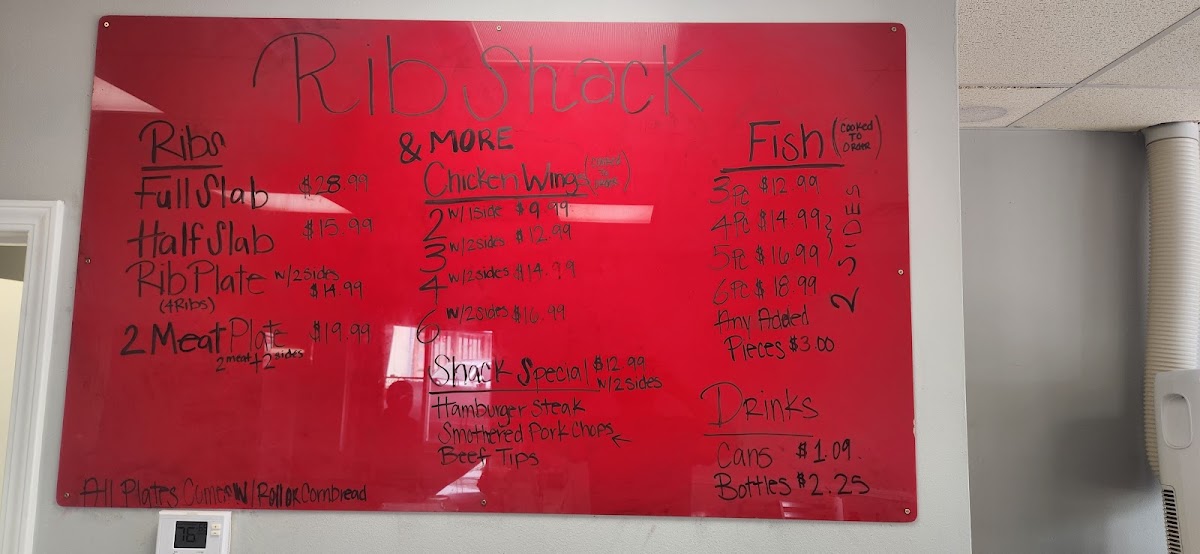 Rib Shack
& MORE
Ribs
Full Slab $28.99
Half Slab $15.99
Rib Plate w/2sides
(4Ribs) $14.99
2 Meat Plate $19.99
2 meat + 2 sides
Chicken Wings
2 w/1side $9.99
3 w/2sides $12.99
4 w/2sides $14.99
6 w/2sides $16.99
Shack Special $12.99
w/2sides
Hamburger Steak
Smothered Pork Chops
Beef Tips
Fish (COOKED
TO
ORDER)
3pc $12.99
4Pc $14.99
5pc $16.99
6Pc $18.99
2 SIDES
Any Added
Pieces $3.00
Drinks
Cans $1.09.
Bottles $2.25
All Plates Comes W/Roll or Cornbread
76